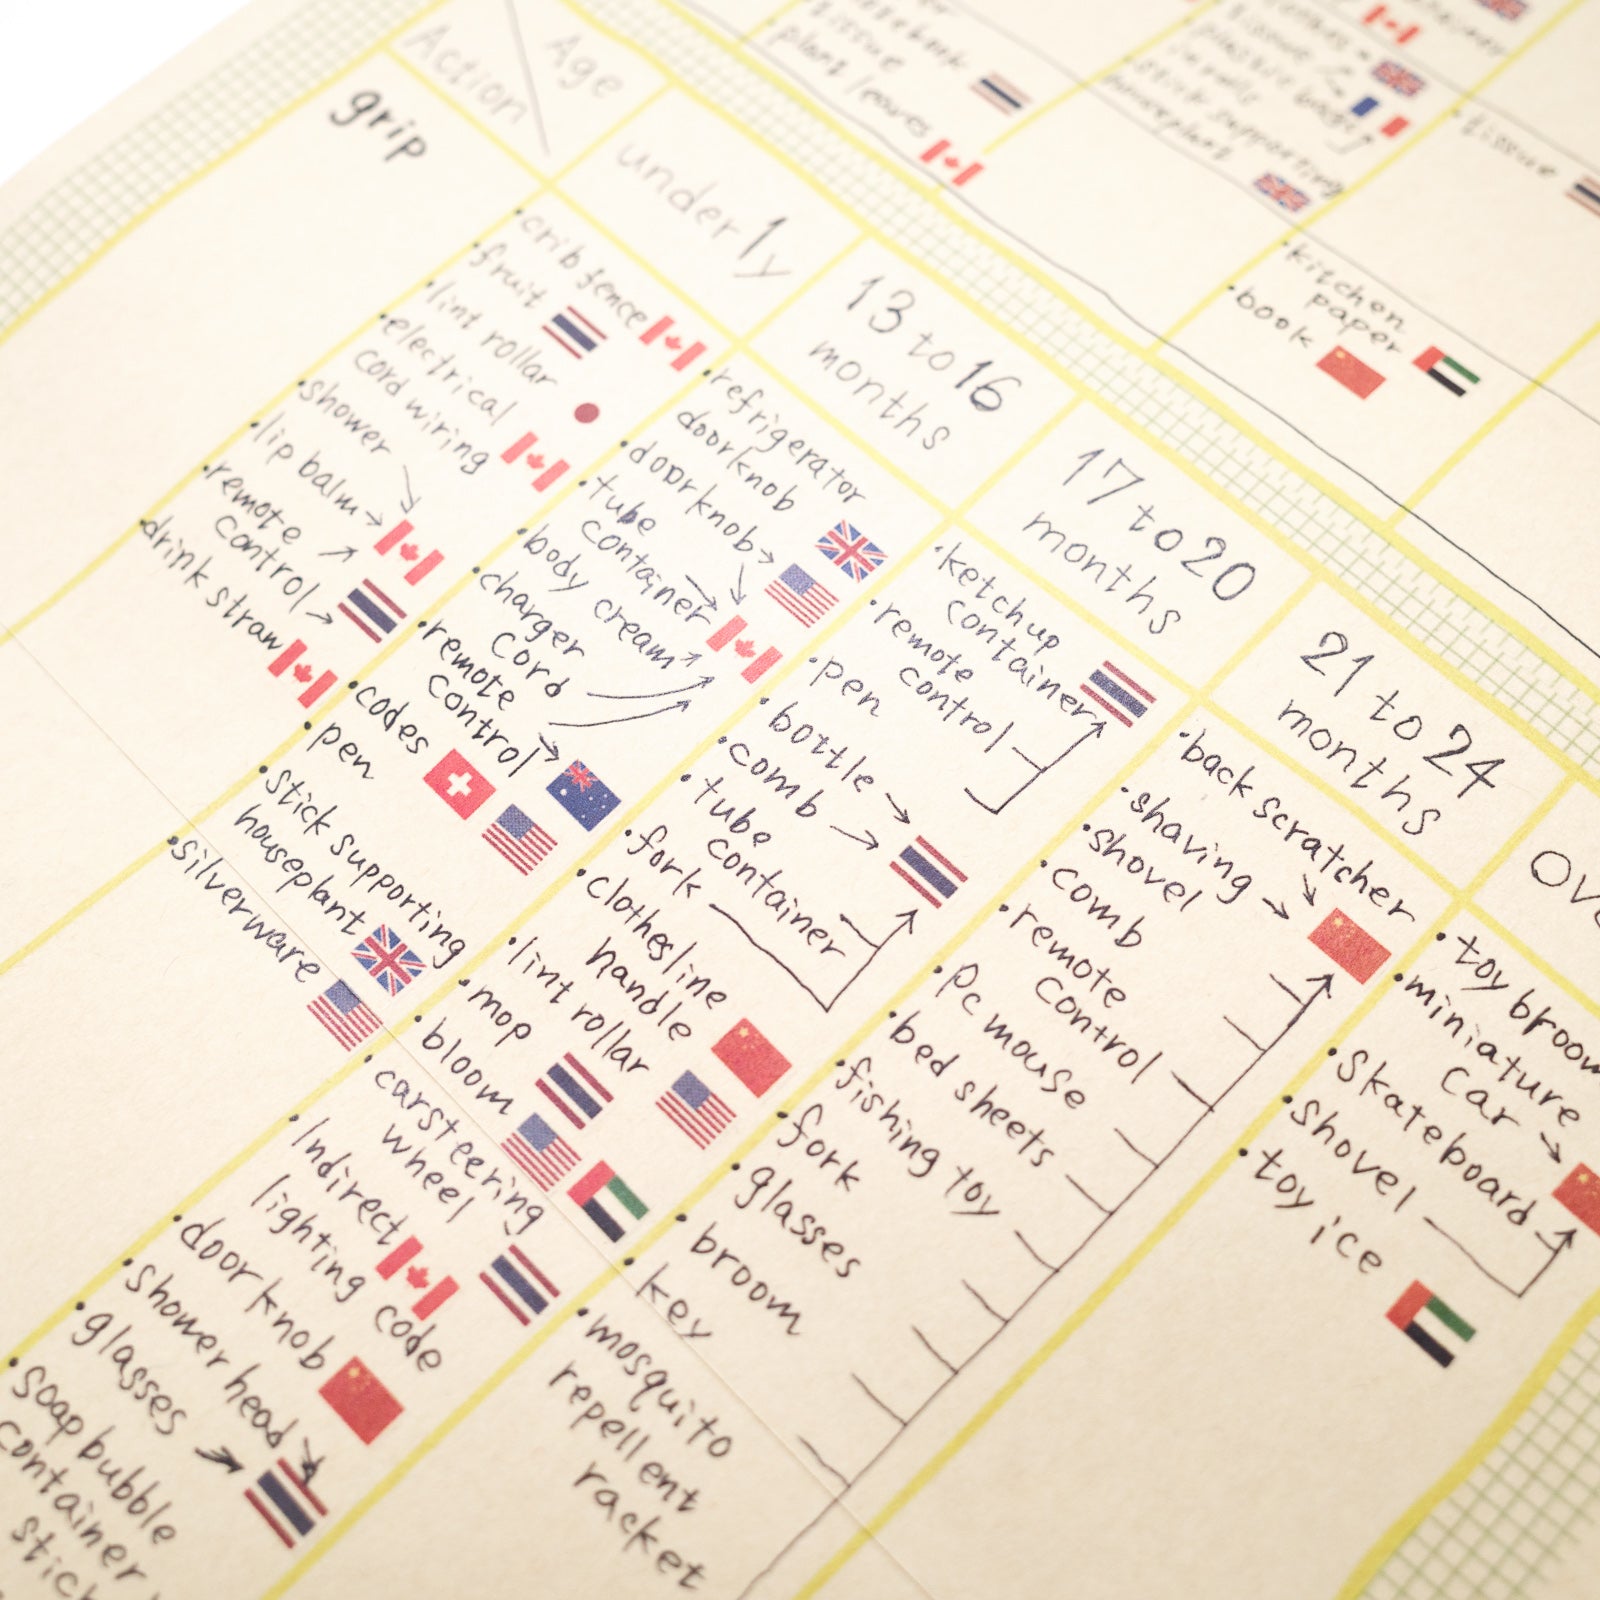 tissue
plant leaves
stick supporting
houseplant
tissue
kitchen
paper
book
Action
Age
grip
under 1y
crib fence
fruit
lint rollar
electrical
cord wiring
shower
lip balm
remote
control
drink straw
13 to 16
months
refrigerator
doorknob
doorknob
tube
container
body cream
charger
cord
remote
control
codes
pen
stick supporting
houseplant
silverware
17 to 20
months
ketchup
container
remote
control
pen
bottle
comb
tube
container
fork
clothesline
handle
lint rollar
mop
bloom
carsteering
wheel
Indirect
lighting code
door knob
shower head
glasses
soap bubble
container
21 to 24
months
back scratcher
shaving
shovel
comb
remote
control
pc mouse
bed sheets
fishing toy
fork
glasses
broom
key
mosquito
repellent
racket
toy broom
miniature
car
skateboard
shovel
toy ice